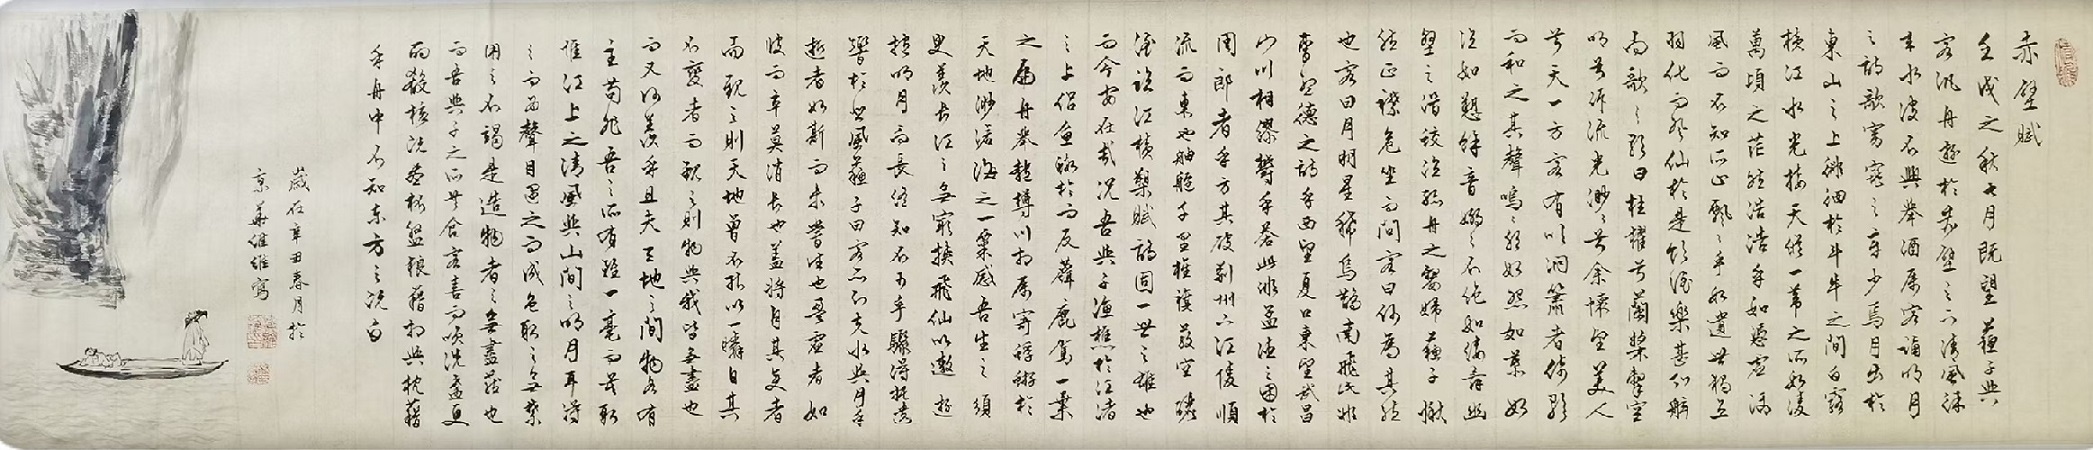 赤壁賦
壬戌之秋七月既望蘇子與
客汎舟遊於赤壁之下清風徐
來水波不興舉酒屬客誦明月
之詩歌窈窕之章少焉月出於
東山之上徘徊於斗牛之間白露
橫江水光接天縱一葦之所如凌
萬頃之茫然浩浩乎如馮虛御
風而不知所止飄〻乎如遺世獨立
羽化而登仙於是飲酒樂甚扣舷
而歌之歌曰桂櫂兮蘭槳擊空
明兮泝流光渺〻兮余懷望美人
兮天一方客有吹洞簫者倚歌
而和之其聲嗚〻然如怨如慕如
泣如慕餘音嫋〻不絕如縷舞幽
壑之潛蛟泣孤舟之嫠婦蘇子愀
然正襟危坐而問客曰何為其然
也客曰月明星稀烏鵲南飛此非
曹孟德之詩乎西望夏口東望武昌
山川相繆鬱乎蒼蒼此非孟德之困於
周郎者乎方其破荊州下江陵順
流而東也舳艫千里旌旗蔽空釃
酒臨江橫槊賦詩固一世之雄也
而今安在哉況吾與子漁樵於江渚
之上侶魚蝦而友麋鹿駕一葉
之扁舟舉匏樽以相屬寄蜉蝣於
天地渺滄海之一粟哀吾生之須
臾羨長江之無窮挾飛仙以遨遊
抱明月而長終知不可乎驟得託遺
響於悲風蘇子曰客亦知夫水與月乎
逝者如斯而未嘗往也盈虛者如
彼而卒莫消長也蓋將自其變者
而觀之則天地曾不能以一瞬自其
不變者而觀之則物與我皆無盡也
而又何羨乎且夫天地之間物各有
主苟非吾之所有雖一毫而莫取
惟江上之清風與山間之明月耳得
之而為聲目遇之而成色取之無禁
用之不竭是造物者之無盡藏也
而吾與子之所共食客喜而笑洗盞更
酌殽核既盡杯盤狼藉相與枕藉
乎舟中不知東方之既白
歲在辛丑春月於
京華維維寫